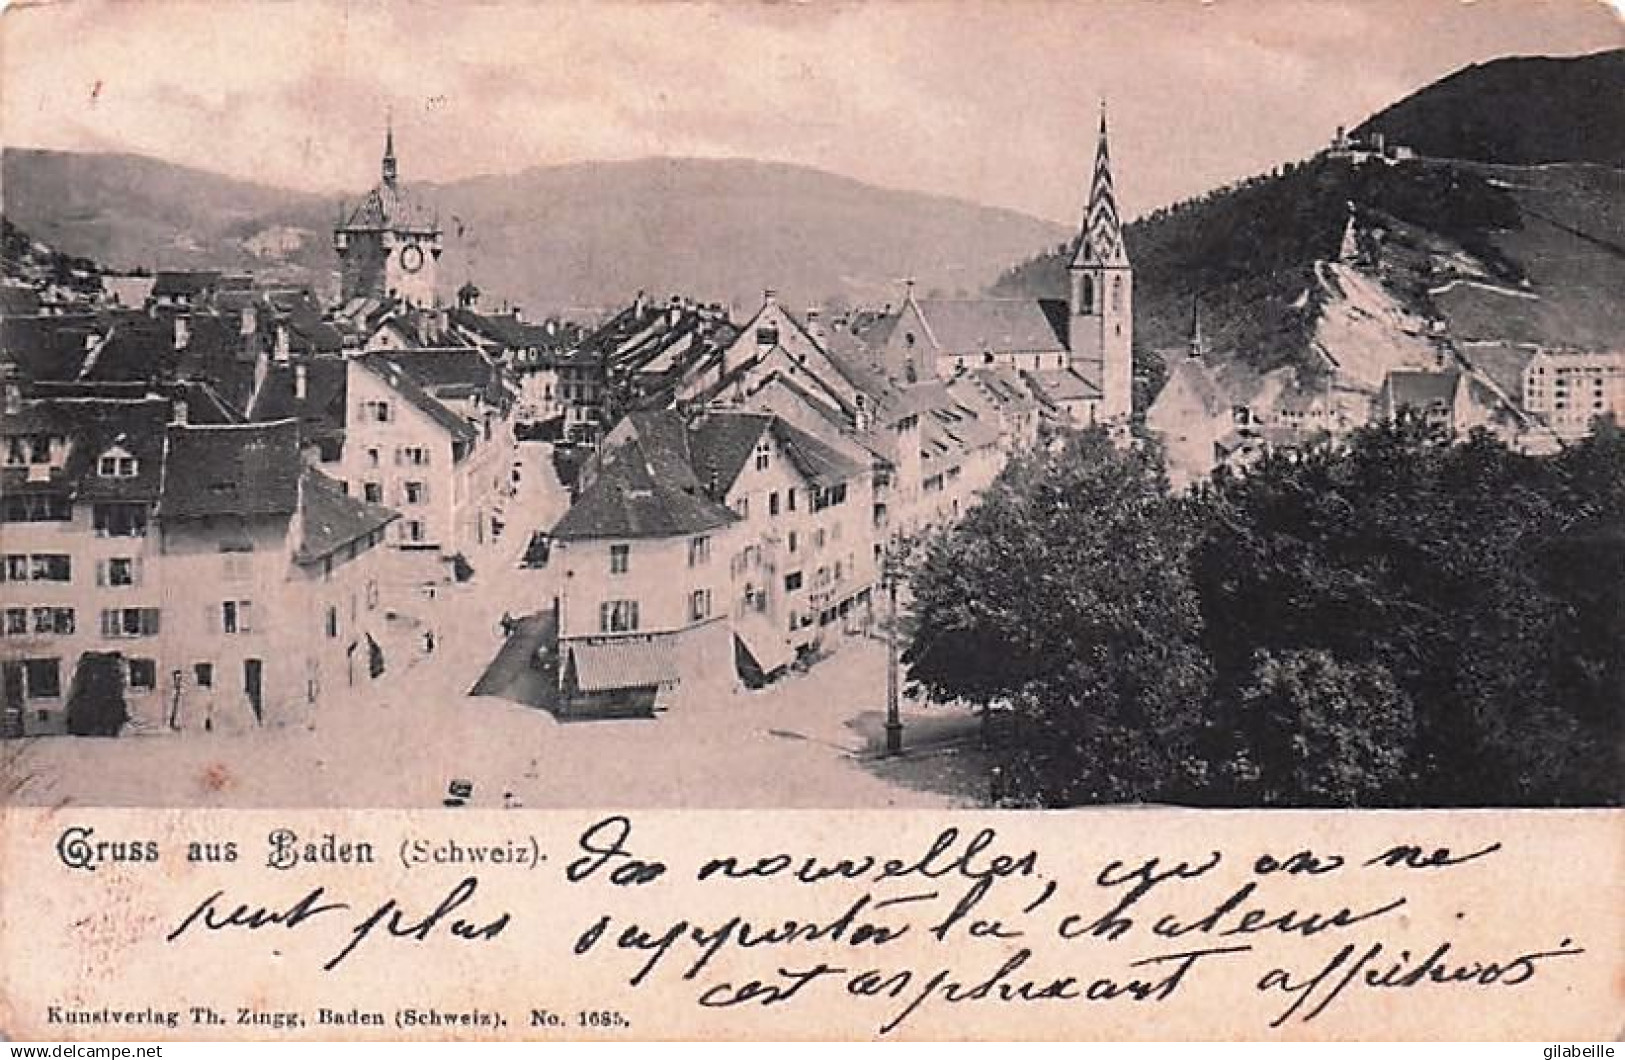 Gruss aus Baden (Schweiz).
nouvelles, qu on ne
peut plus supporter la chaleur
c'est asphixiant
Kunstverlag Th. Zingg, Baden (Schweiz). No. 1685.
https://www.delcampe.net
gilabeille